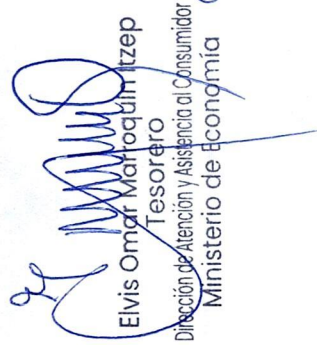 Elvis Omar Marroquín Itzep
Tesorero
Dirección de Atención y Asistencia al Consumidor
Ministerio de Economía